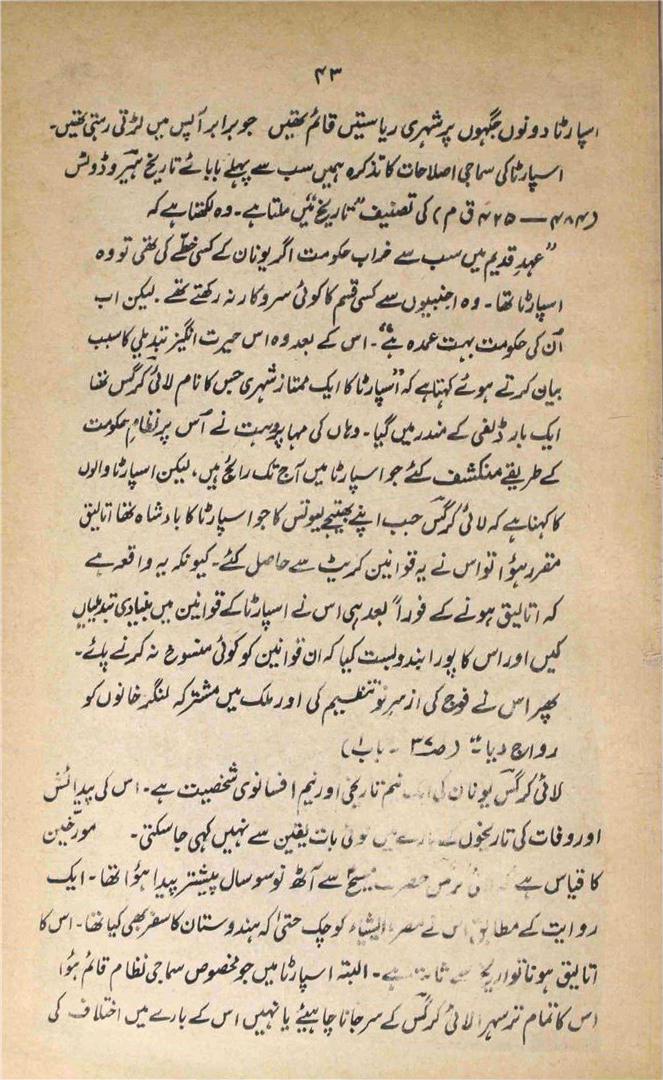 ۴۳
اسپارٹا دونوں جگہوں پر شہری ریاستیں قائم تھیں جو برابر آپس میں لڑتی رہتی تھیں۔
اسپارٹا کی سماجی اصلاحات کا تذکرہ ہمیں سب سے پہلے بابائے تاریخ ہیروڈوٹس
(۴۸۴ — ۴۲۵ ق م) کی تصنیف "تاریخ" میں ملتا ہے۔ وہ لکھتا ہے کہ
"عہدِ قدیم میں سب سے خراب حکومت اگر یونان کے کسی خطے کی تھی تو وہ
اسپارٹا تھا۔ وہ اجنبیوں سے کسی قسم کا کوئی سروکار نہ رکھتے تھے۔ لیکن اب
اُن کی حکومت بہت عمدہ ہے"۔ اس کے بعد وہ اس حیرت انگیز تبدیلی کا سبب
بیان کرتے ہوئے کہتا ہے کہ "اسپارٹا کا ایک ممتاز شہری جس کا نام لائی کرگس تھا
ایک بار ڈلفی کے مندر میں گیا۔ وہاں کی مہا پروہت نے اُس پر نظامِ حکومت
کے طریقے منکشف کئے جو اسپارٹا میں آج تک رائج ہیں، لیکن اسپارٹا والوں
کا کہنا ہے کہ لائی کرگس جب اپنے بھتیجے لیوٹس کا جو اسپارٹا کا بادشاہ تھا اتالیق
مقرر ہؤا تو اس نے یہ قوانین کریٹ سے حاصل کئے۔ کیونکہ یہ واقعہ ہے
کہ اتالیق ہونے کے فوراً بعد ہی اس نے اسپارٹا کے قوانین میں بنیادی تبدیلیاں
کیں اور اس کا پورا بندوبست کیا کہ ان قوانین کو کوئی منسوخ نہ کرنے پائے۔
پھر اس نے فوج کی ازسرِنو تنظیم کی اور ملک میں مشترکہ لنگر خانوں کو
رواج دیا"۔ (ص ۳۷ ۔ باب ۱)
لائی کرگس یونان کی نیم تاریخی اور نیم افسانوی شخصیت ہے۔ اس کی پیدائش
اور وفات کی تاریخوں کے بارے میں کوئی بات یقین سے نہیں کہی جا سکتی۔ مورّخین
کا قیاس ہے کہ لائی کرگس حضرت مسیحؑ سے آٹھ نو سو سال پیشتر پیدا ہؤا تھا۔ ایک
روایت کے مطابق اس نے مصر، ایشیاء کوچک حتیٰ کہ ہندوستان کا سفر بھی کیا تھا۔ اس کا
اتالیق ہونا تو تاریخ سے ثابت ہے۔ البتہ اسپارٹا میں جو مخصوص سماجی نظام قائم ہؤا
اس کا تمام تر سہرا لائی کرگس کے سر جانا چاہیئے یا نہیں اس کے بارے میں اختلاف کی